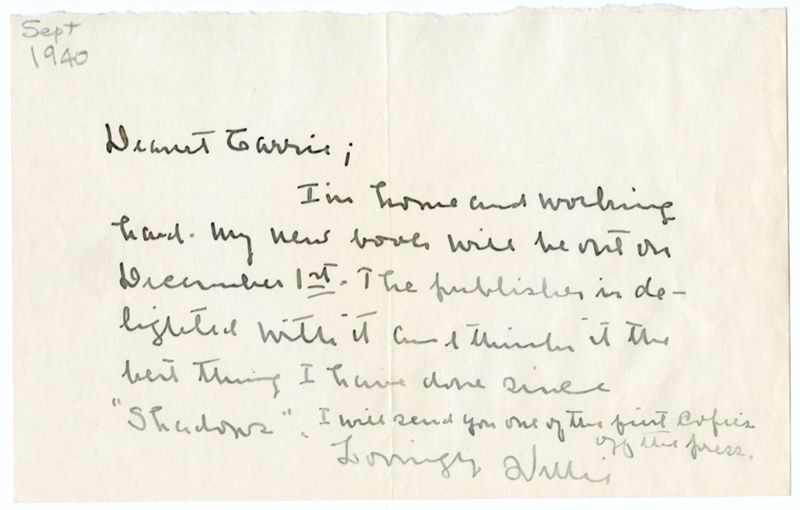 Sept
1940
Dearest Carrie;
I'm home and working
hard. My new book will be out on
December 1st. The publisher is de-
lighted with it and thinks it the
best thing I have done since
"Shadows". I will send you one of the first copies
off the press.
Lovingly Willie